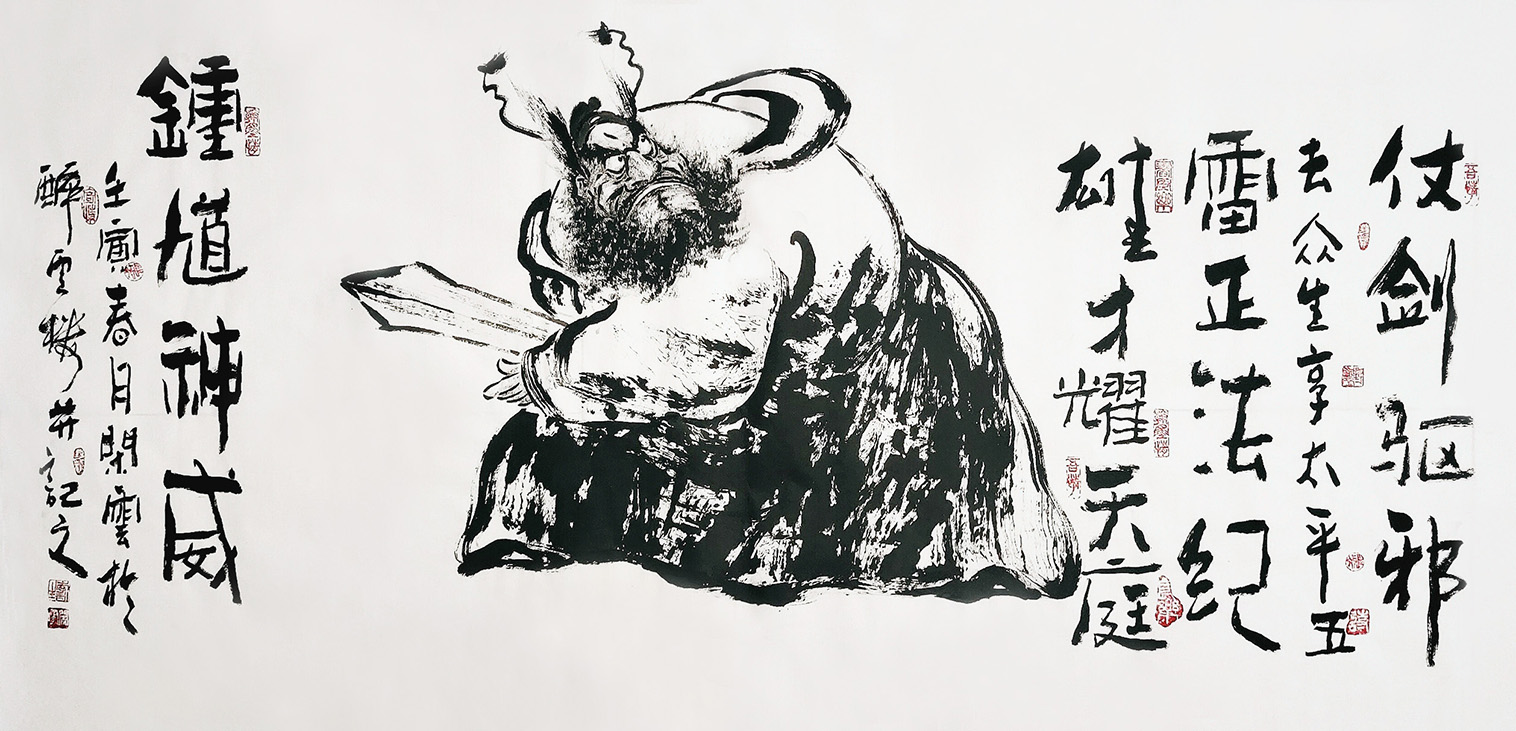 仗剑驱邪
去众生享太平五
雷正法纪
雄才耀天庭
鍾馗神威
壬寅春月閑雲於
醉雲楼并記文